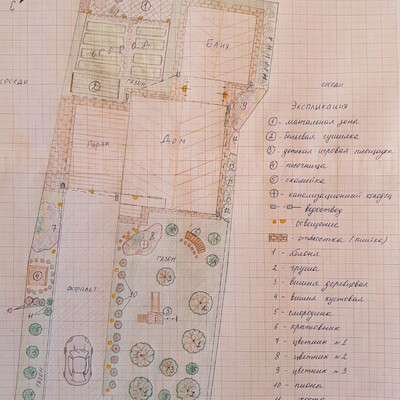 С
БАНЯ
ОГОРОД
ГАЗОН
СОСЕДИ
СОСЕДИ
ГАРАЖ
ДОМ
ГАЗОН
АСФАЛЬТ
ГАЗОН
Экспликация
① - мангальная зона
② - бельевая сушилка
③ - детская игровая площадка
④ - песочница
⑤ - скамейка
- канализационный колодец
- водоотвод
- освещение
- отмостка (плитка)
1 - яблоня
2 - груша
3 - вишня деревцовая
4 - вишня кустовая
5 - смородина
6 - крыжовник
7 - цветник №1
8 - цветник №2
9 - цветник №3
10 - пионы
11 - хоста